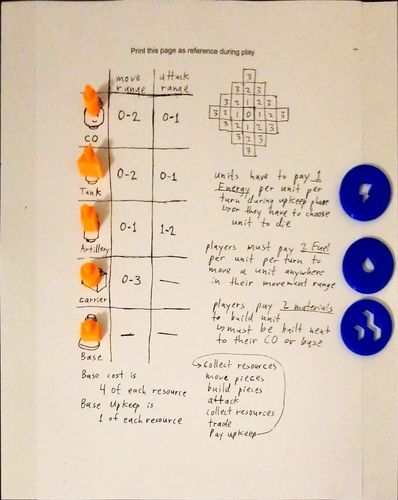 Print this page as reference during play
move range
attack range
CO 0-2 0-1
Tank 0-2 0-1
Artillery 0-1 1-2
Carrier 0-3 —
Base — —
3
3 2 3
3 2 1 2 3
3 2 1 0 1 2 3
3 2 1 2 3
3 2 3
3
units have to pay 1
Energy per unit per
turn during upkeep phase
↳ or they have to choose
unit to die
players must pay 2 Fuel
per unit per turn to
move a unit anywhere
in their movement range
players pay 2 materials
to build unit
↳ must be built next
to their CO or base
Base cost is
4 of each resource
Base Upkeep is
1 of each resource
collect resources
move pieces
build pieces
attack
collect resources
trade
Pay upkeep